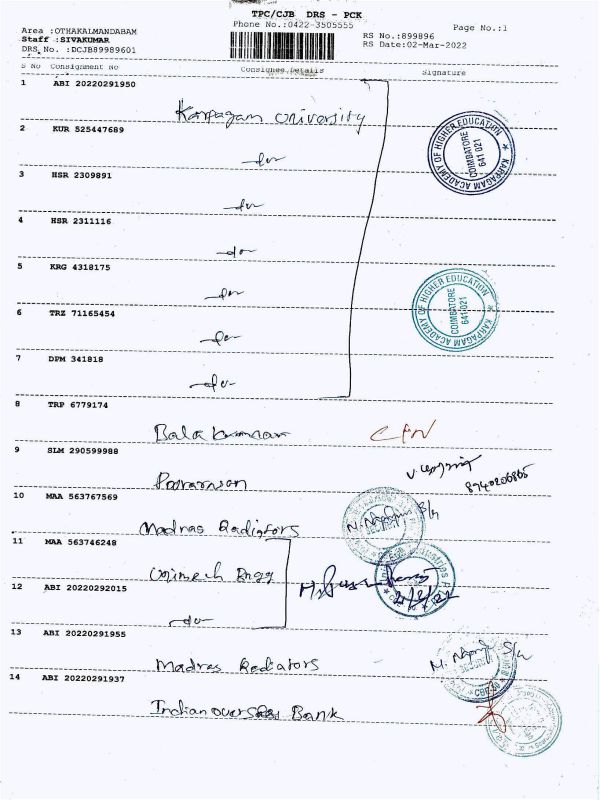 TPC/CJB DRS - PCK
Phone No.:0422-3505555
Page No.:1
Area :OTHAKALMANDABAM
Staff :SIVAKUMAR
DRS No. :DCJB89989601
RS No.:899896
RS Date:02-Mar-2022
S No Consignment No Consignee Details Signature
1 ABI 20220291950
Karpagam University
2 KUR 525447689
do
3 HSR 2309891
do
4 HSR 2311116
do
5 KRG 4318175
do
6 TRZ 71165454
do
7 DPM 341818
do
KARPAGAM ACADEMY OF HIGHER EDUCATION
COIMBATORE
641 021
KARPAGAM ACADEMY OF HIGHER EDUCATION
COIMBATORE
641 021
8 TRP 6779174
Bala kumar
9 SLM 290599988
10 MAA 563767569
Madras Radiators
11 MAA 563746248
Unimech Engg
12 ABI 20220292015
do
13 ABI 20220291955
Madras Radiators
14 ABI 20220291937
Indian overseas Bank